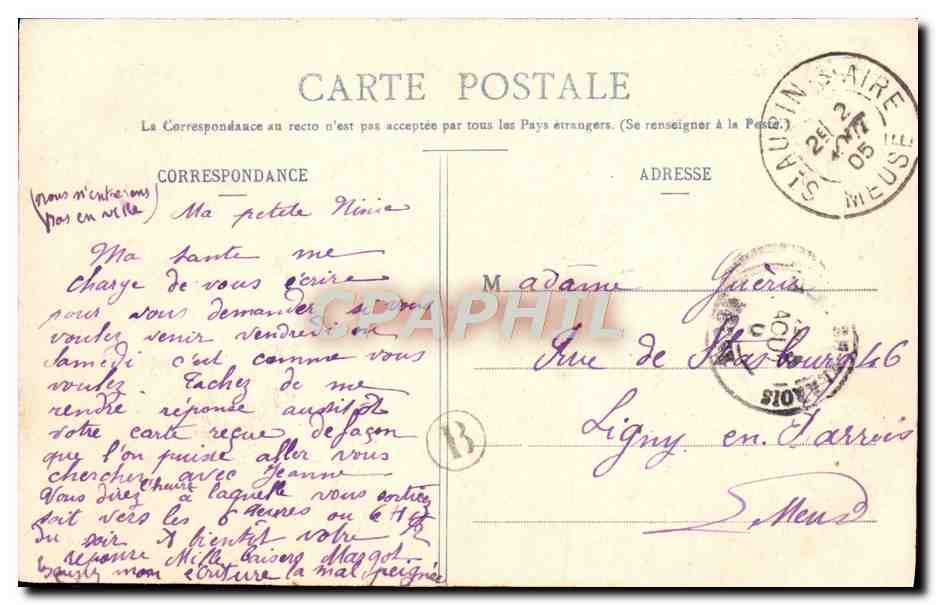 CARTE POSTALE
La Correspondance au recto n'est pas acceptée par tous les Pays étrangers. (Se renseigner à la Poste.)
CORRESPONDANCE
ADRESSE
(nous n'entrerons
pas en ville)
Ma petite Ninie
Ma tante me
charge de vous écrire
pour vous demander si vous
voulez venir vendredi ou
Samedi c'est comme vous
voulez. Tachez de me
rendre réponse aussitôt
votre carte reçue de façon
que l'on puisse aller vous
chercher avec Jeanne
Vous direz l'heure à laquelle vous sortirez
soit vers les 6 heures ou 6 H ½
du soir A bientôt votre
réponse Mille baisers Margot
mon écriture la mal peignée
Madame Guérin
rue de Strasbourg 46
Ligny en Barrois
Meuse
ST AUBIN S. AIRE
2E 2
AOUT
05
MEUSE
AOU
B
CPAPHIL